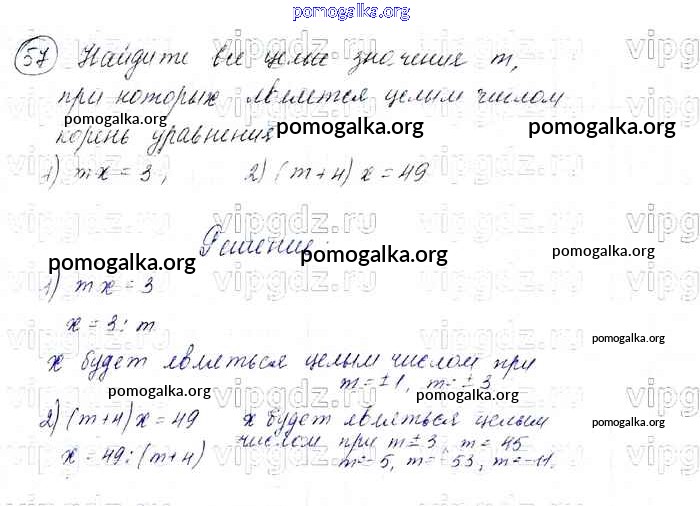 pomogalka.org
57 Найдите все целые значения m,
при которых является целым числом
pomogalka.org
корень уравнения
pomogalka.org
pomogalka.org
1) mx = 3; 2) (m+4) x = 49
vipgdz.ru
Решение:
pomogalka.org
pomogalka.org
pomogalka.org
1) mx = 3
x = 3 : m
pomogalka.org
x будет являться целым числом при
m = ±1, m = ±3
pomogalka.org
pomogalka.org
2) (m+4) x = 49 x будет являться целым
pomogalka.org
числом при m ± 3, m = 45
x = 49 : (m+4) m = -5, m = -53, m = -11.
vipgdz.ru